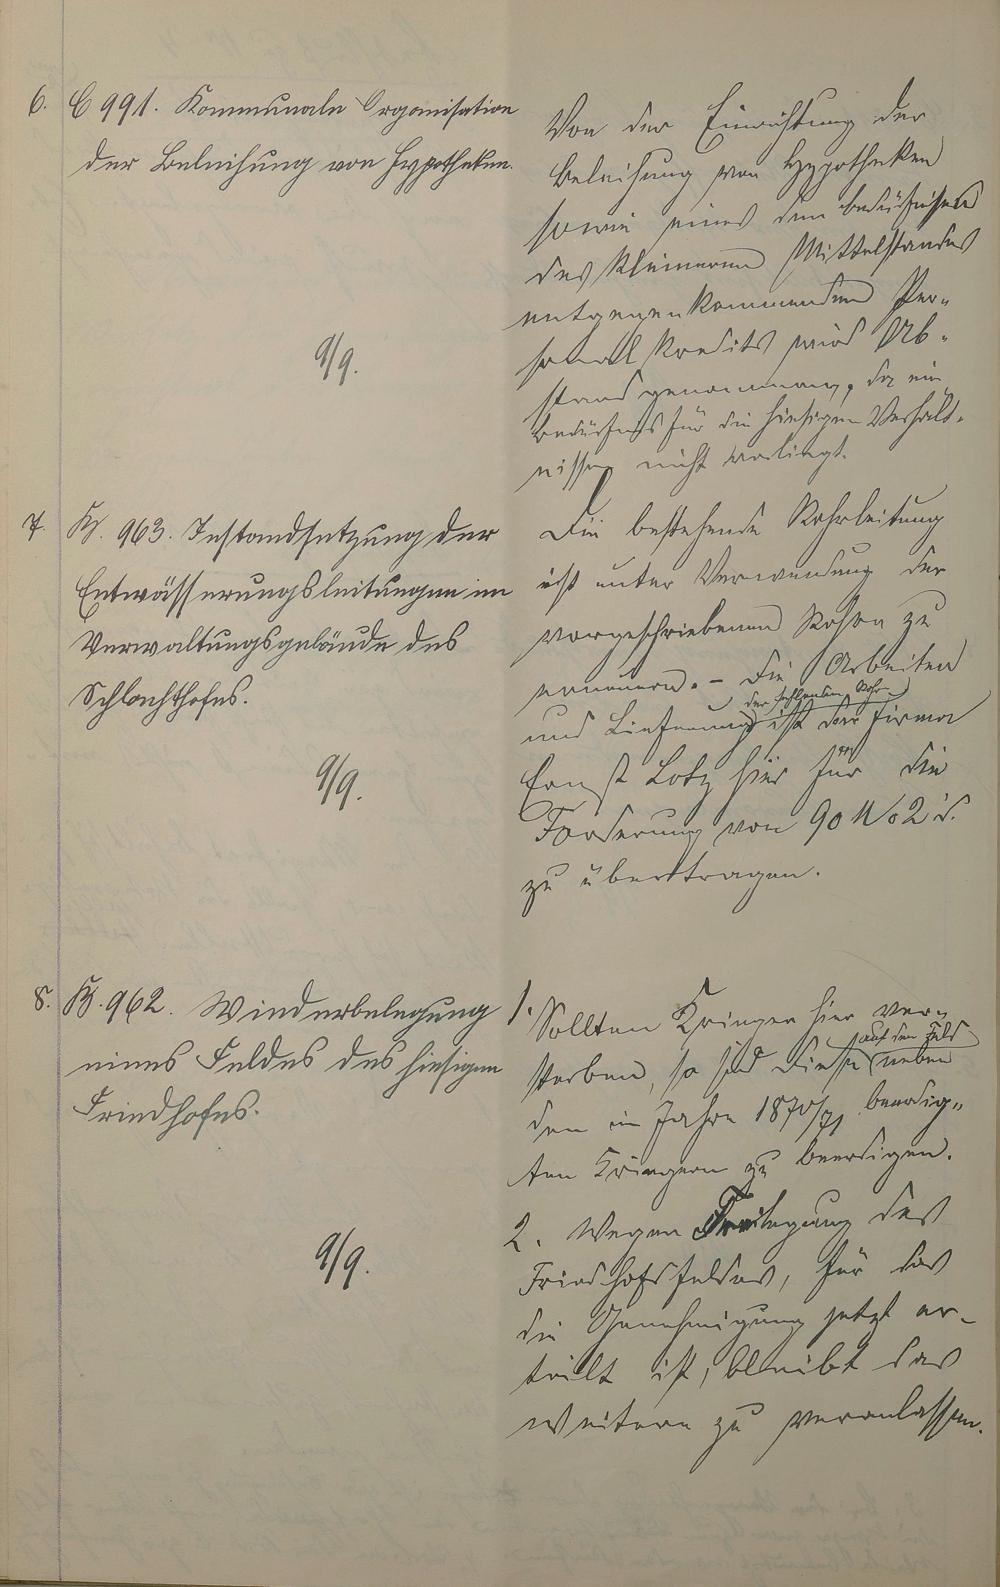 6. C 991. Kommunale Organisation
der Beleihung von Hypotheken.
9/9.
Von der Einrichtung der
Beleihung von Hypotheken
sowie eines den Bedürfnissen
des kleineren Mittelstandes
entgegenkommenden Per-
sonal Kredits wird Ab-
stand genommen, da ein
Bedürfnis für die hiesigen Verhält-
nisse nicht vorliegt.
7. K. 963. Instandsetzung der
Entwässerungsleitungen im
Verwaltungsgebäude des
Schlachthofes.
9/9.
Die bestehende Rohrleitung
ist unter Verwendung der
vorgeschriebenen Rohre zu
erneuern. - Die Arbeiten
der fehlenden Rohre
und Lieferung ist der Firma
Ernst Lotz hier für die
Forderung von 90 M 02 d.
zu übertragen.
8. B. 962. Wiederbelegung
eines Feldes des hiesigen
Friedhofes.
9/9.
1. Sollten Krieger hier ver-
auf dem Feld
sterben, so sind diese neben
den im Jahre 1870/71 beerdig-
ten Kriegern zu beerdigen.
2. Wegen Freilegung des
Friedhofsfeldes, für das
die Genehmigung jetzt er-
teilt ist, bleibt das
Weitere zu veranlassen.